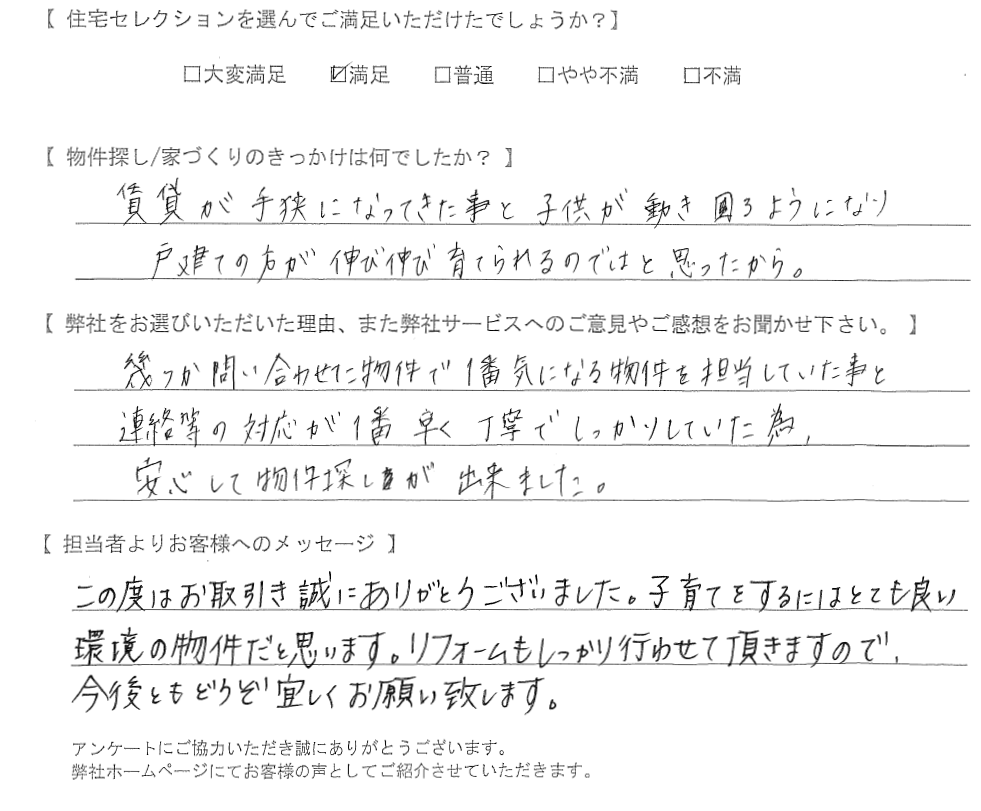 【 住宅セレクションを選んでご満足いただけたでしょうか？】
□大変満足 ☑満足 □普通 □やや不満 □不満
【 物件探し/家づくりのきっかけは何でしたか？ 】
賃貸が手狭になってきた事と子供が動き回るようになり
戸建ての方が伸び伸び育てられるのではと思ったから。
【 弊社をお選びいただいた理由、また弊社サービスへのご意見やご感想をお聞かせ下さい。 】
幾つか問い合わせた物件で1番気になる物件を担当していた事と
連絡等の対応が1番早く丁寧でしっかりしていた為、
安心して物件探しが出来ました。
【 担当者よりお客様へのメッセージ 】
この度はお取引き誠にありがとうございました。子育てをするにはとても良い
環境の物件だと思います。リフォームもしっかり行わせて頂きますので、
今後ともどうぞ宜しくお願い致します。
アンケートにご協力いただき誠にありがとうございます。
弊社ホームページにてお客様の声としてご紹介させていただきます。